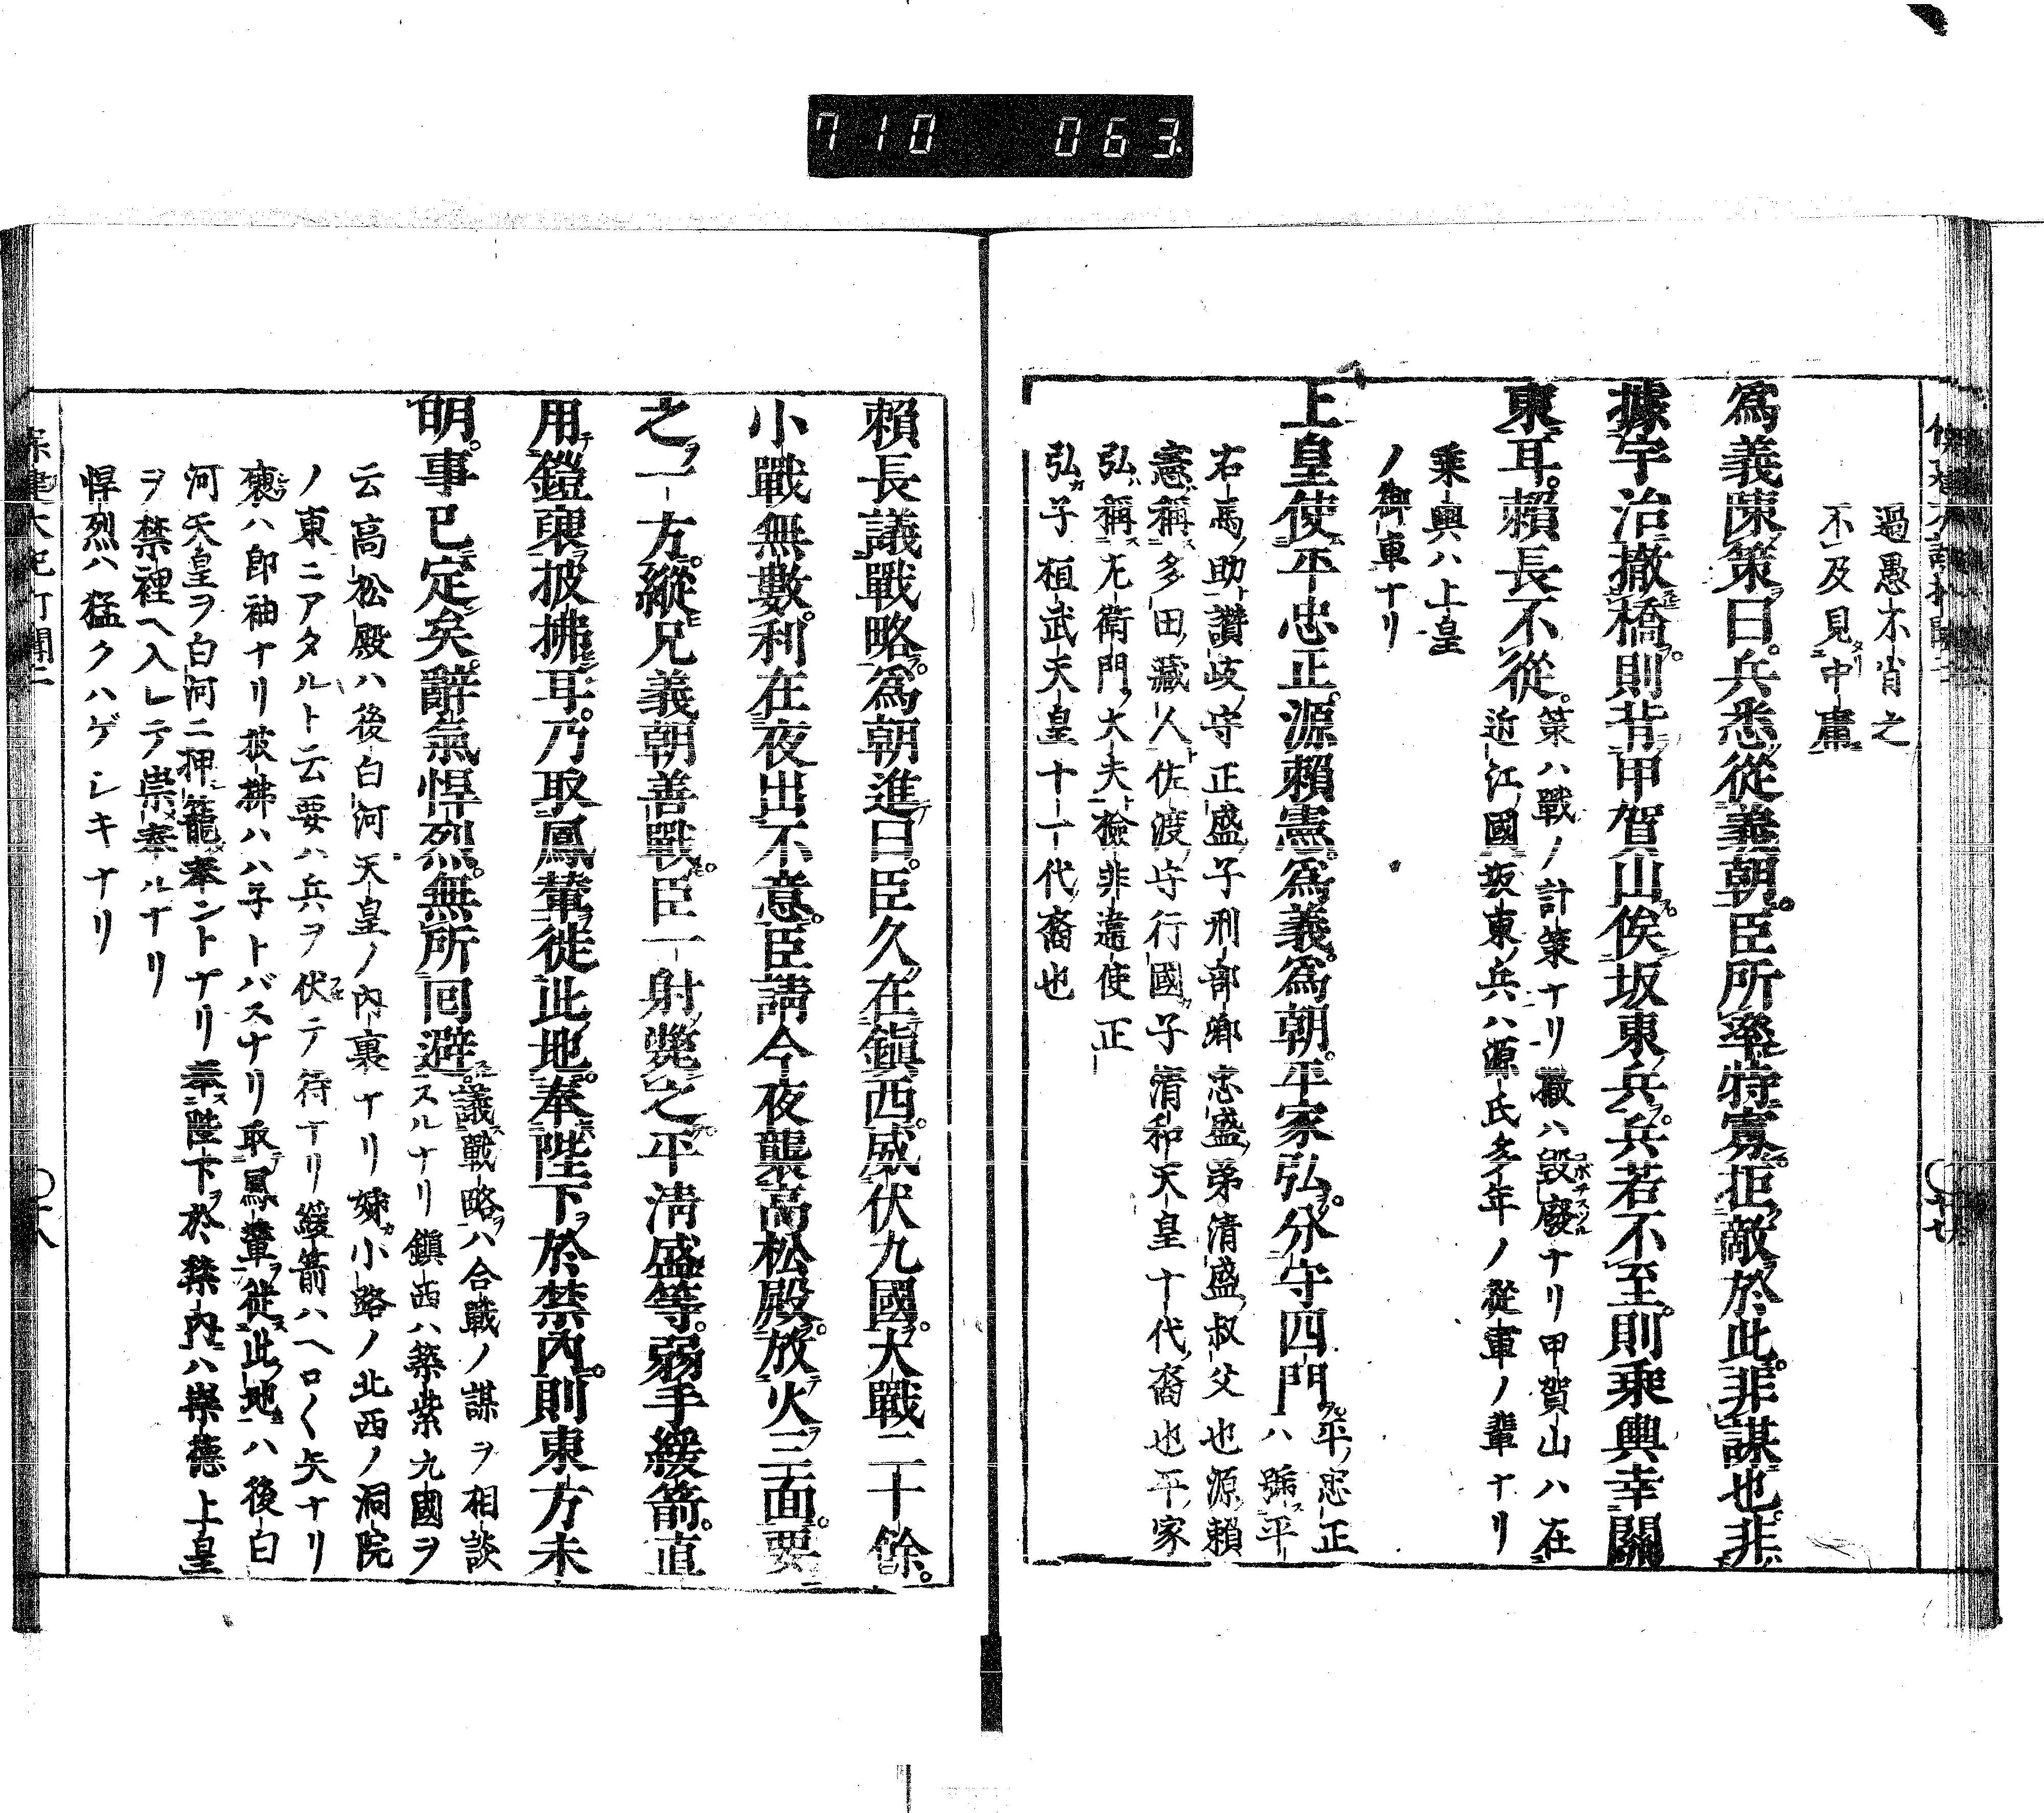 710 063
過愚不肖之
不及見中庸
爲義陳策曰。兵悉從義朝。臣所率特寡。拒敵於此。非謀也。非
據宇治撤橋。則背甲賀山。俟坂東兵。兵若不至。則乘輿幸關
東耳。賴長不從。
策ハ戰ノ計策ナリ撤ハ毀廢ナリ甲賀山ハ在
近江國坂東兵ハ源氏多年ノ從軍ノ輩ナリ
乘輿ハ上皇
ノ御車ナリ
上皇使平忠正。源賴憲。爲義。爲朝。平家弘。分守四門。
平忠正
ハ號平
右馬助讚岐守正盛子刑部卿忠盛弟清盛叔父也源賴
憲稱多田藏人佐渡守行國子清和天皇十代裔也平家
弘稱尢衛門大夫檢非違使正
弘子桓武天皇十一代裔也
賴長議戰略。爲朝進曰。臣久在鎭西。威伏九國。大戰二十餘。
小戰無數。利在夜出不意。臣請今夜襲高松殿。放火三面。要
之一方。縱兄義朝善戰。臣一射斃之。平清盛等。弱手緩箭。直
用鎧褏披拂耳。乃取鳳輦徙此地。奉陛下於禁内。則東方未
明。事已定矣。辭氣悍烈。無所回避。
議戰略ハ合戰ノ謀ヲ相談
スルナリ鎭西ハ築紫九國ヲ
云高松殿ハ後白河天皇ノ内裏ナリ姉小路ノ北西ノ洞院
ノ東ニアタルト云要ハ兵ヲ伏テ待ナリ緩箭ハヘロ〱矢ナリ
褏ハ即袖ナリ披拂ハハ子トバスナリ取鳳輦徙此地ハ後白
河天皇ヲ白河ニ押籠奉ントナリ奉陛下於禁内ハ崇德上皇
ヲ禁裡ヘ入レテ崇奉ルナリ
悍烈ハ猛クハゲシキナリ